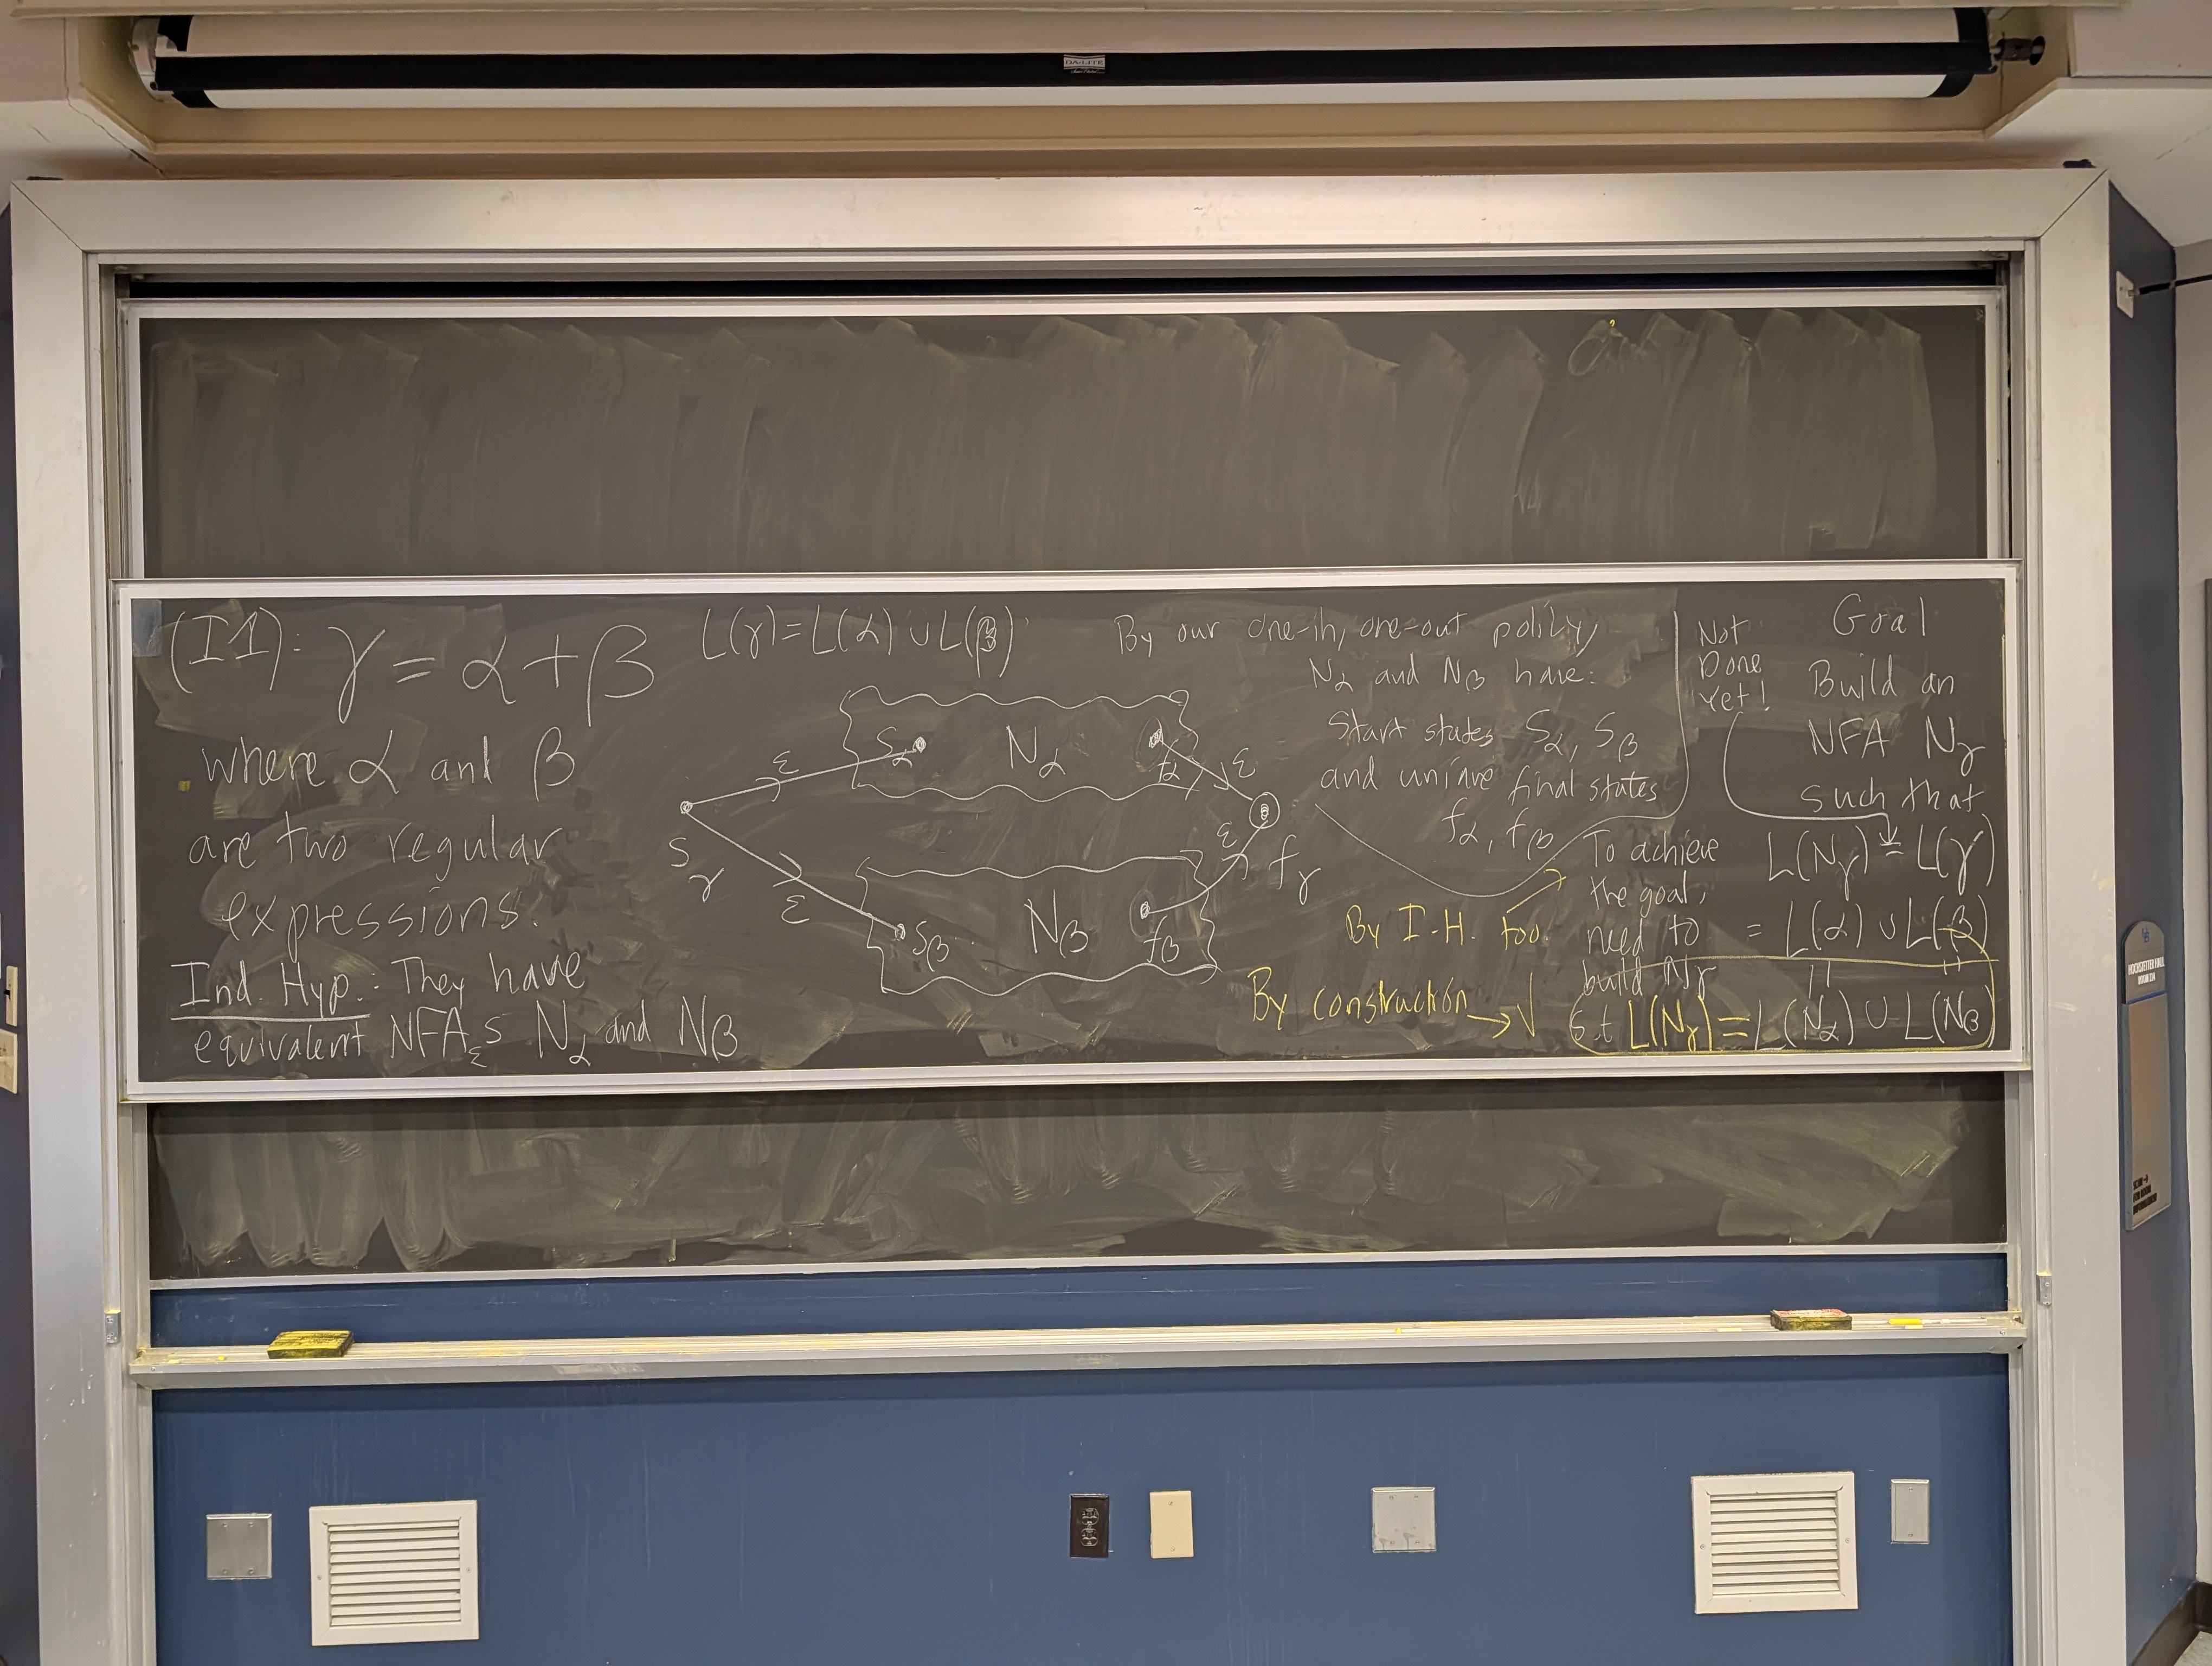 DA-LITE
(I1): γ = α + β
where α and β
are two regular
expressions.
Ind. Hyp.: They have
equivalent NFAεs Nα and Nβ
L(γ) = L(α) ∪ L(β)
Sα
Nα
fα
ε
ε
Sγ
ε
ε
fγ
Sβ
Nβ
fβ
By our one-in, one-out policy,
Nα and Nβ have:
Start states Sα, Sβ
and unique final states
fα, fβ
By I.H. too.
By construction → √
Not
Done
Yet!
To achieve
the goal,
need to
build Nγ
s.t L(Nγ) = L(Nα) ∪ L(Nβ)
Goal
Build an
NFA Nγ
such that
L(Nγ) = L(γ)
= L(α) ∪ L(β)
HOCHSTETTER HALL